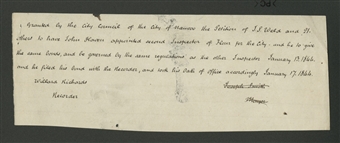 Granted by the City Council of the City of Nauvoo the Petition of J. S. Weld and
to have John appointed second Inspector of Flour for the City, and he to give
the same bonds, and be governed by the same regulations as the other Inspector January 13. 1844.
and he filed his bond with the Recorder, and took his Oath of Office accordingly January 17. 1844
Willard Richards
Joseph Smith
Recorder
Mayor